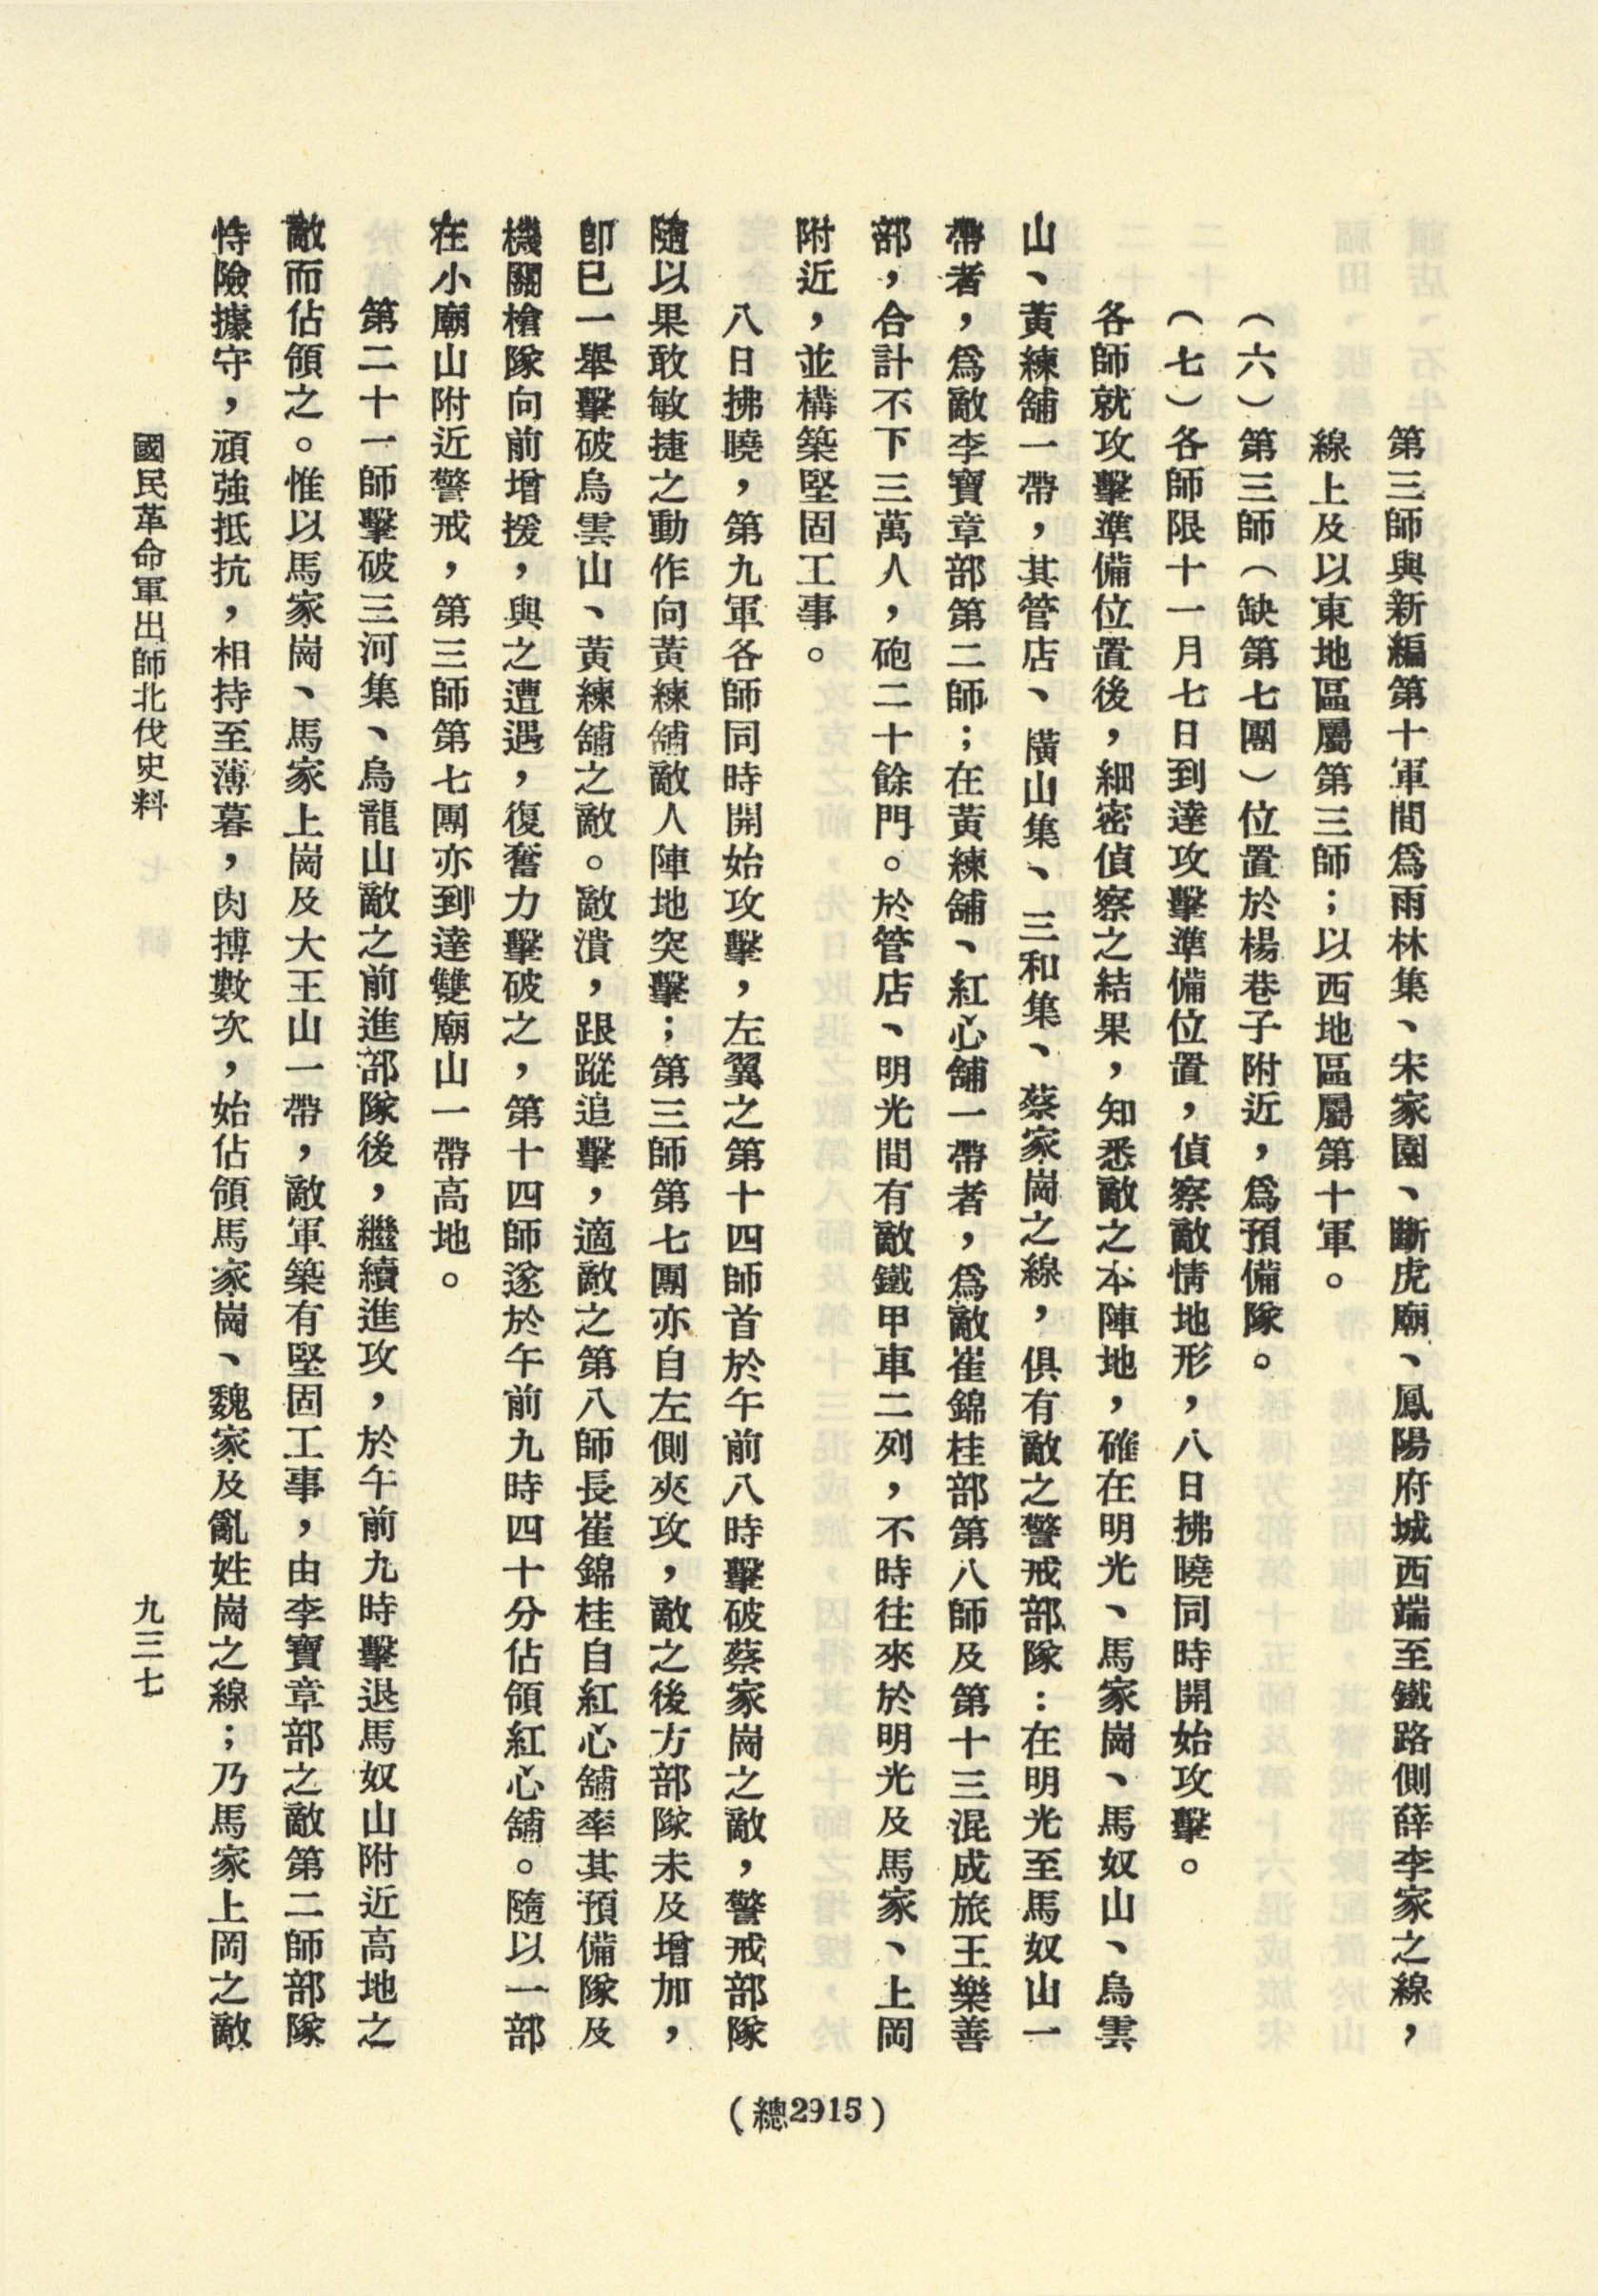 第三師與新編第十軍間爲雨林集、宋家園、斷虎廟、鳳陽府城西端至鐵路側薛李家之線，
線上及以東地區屬第三師；以西地區屬第十軍。
（六）第三師（缺第七團）位置於楊巷子附近，爲預備隊。
（七）各師限十一月七日到達攻擊準備位置，偵察敵情地形，八日拂曉同時開始攻擊。
各師就攻擊準備位置後，細密偵察之結果，知悉敵之本陣地，確在明光、馬家崗、馬奴山、烏雲
山、黃練舖一帶，其管店、橫山集、三和集、蔡家崗之線，俱有敵之警戒部隊：在明光至馬奴山一
帶者，爲敵李寶章部第二師；在黃練舖、紅心舖一帶者，爲敵崔錦桂部第八師及第十三混成旅王樂善
部，合計不下三萬人，砲二十餘門。於管店、明光間有敵鐵甲車二列，不時往來於明光及馬家、上岡
附近，並構築堅固工事。
八日拂曉，第九軍各師同時開始攻擊，左翼之第十四師首於午前八時擊破蔡家崗之敵，警戒部隊
隨以果敢敏捷之動作向黃練舖敵人陣地突擊；第三師第七團亦自左側夾攻，敵之後方部隊未及增加，
卽已一舉擊破烏雲山、黃練舖之敵。敵潰，跟蹤追擊，適敵之第八師長崔錦桂自紅心舖率其預備隊及
機關槍隊向前增援，與之遭遇，復奮力擊破之，第十四師遂於午前九時四十分佔領紅心舖。隨以一部
在小廟山附近警戒，第三師第七團亦到達雙廟山一帶高地。
第二十一師擊破三河集、烏龍山敵之前進部隊後，繼續進攻，於午前九時擊退馬奴山附近高地之
敵而佔領之。惟以馬家崗、馬家上崗及大王山一帶，敵軍築有堅固工事，由李寶章部之敵第二師部隊
恃險據守，頑強抵抗，相持至薄暮，肉搏數次，始佔領馬家崗、魏家及亂姓崗之線；乃馬家上岡之敵
國民革命軍出師北伐史料
九三七
（總2915）